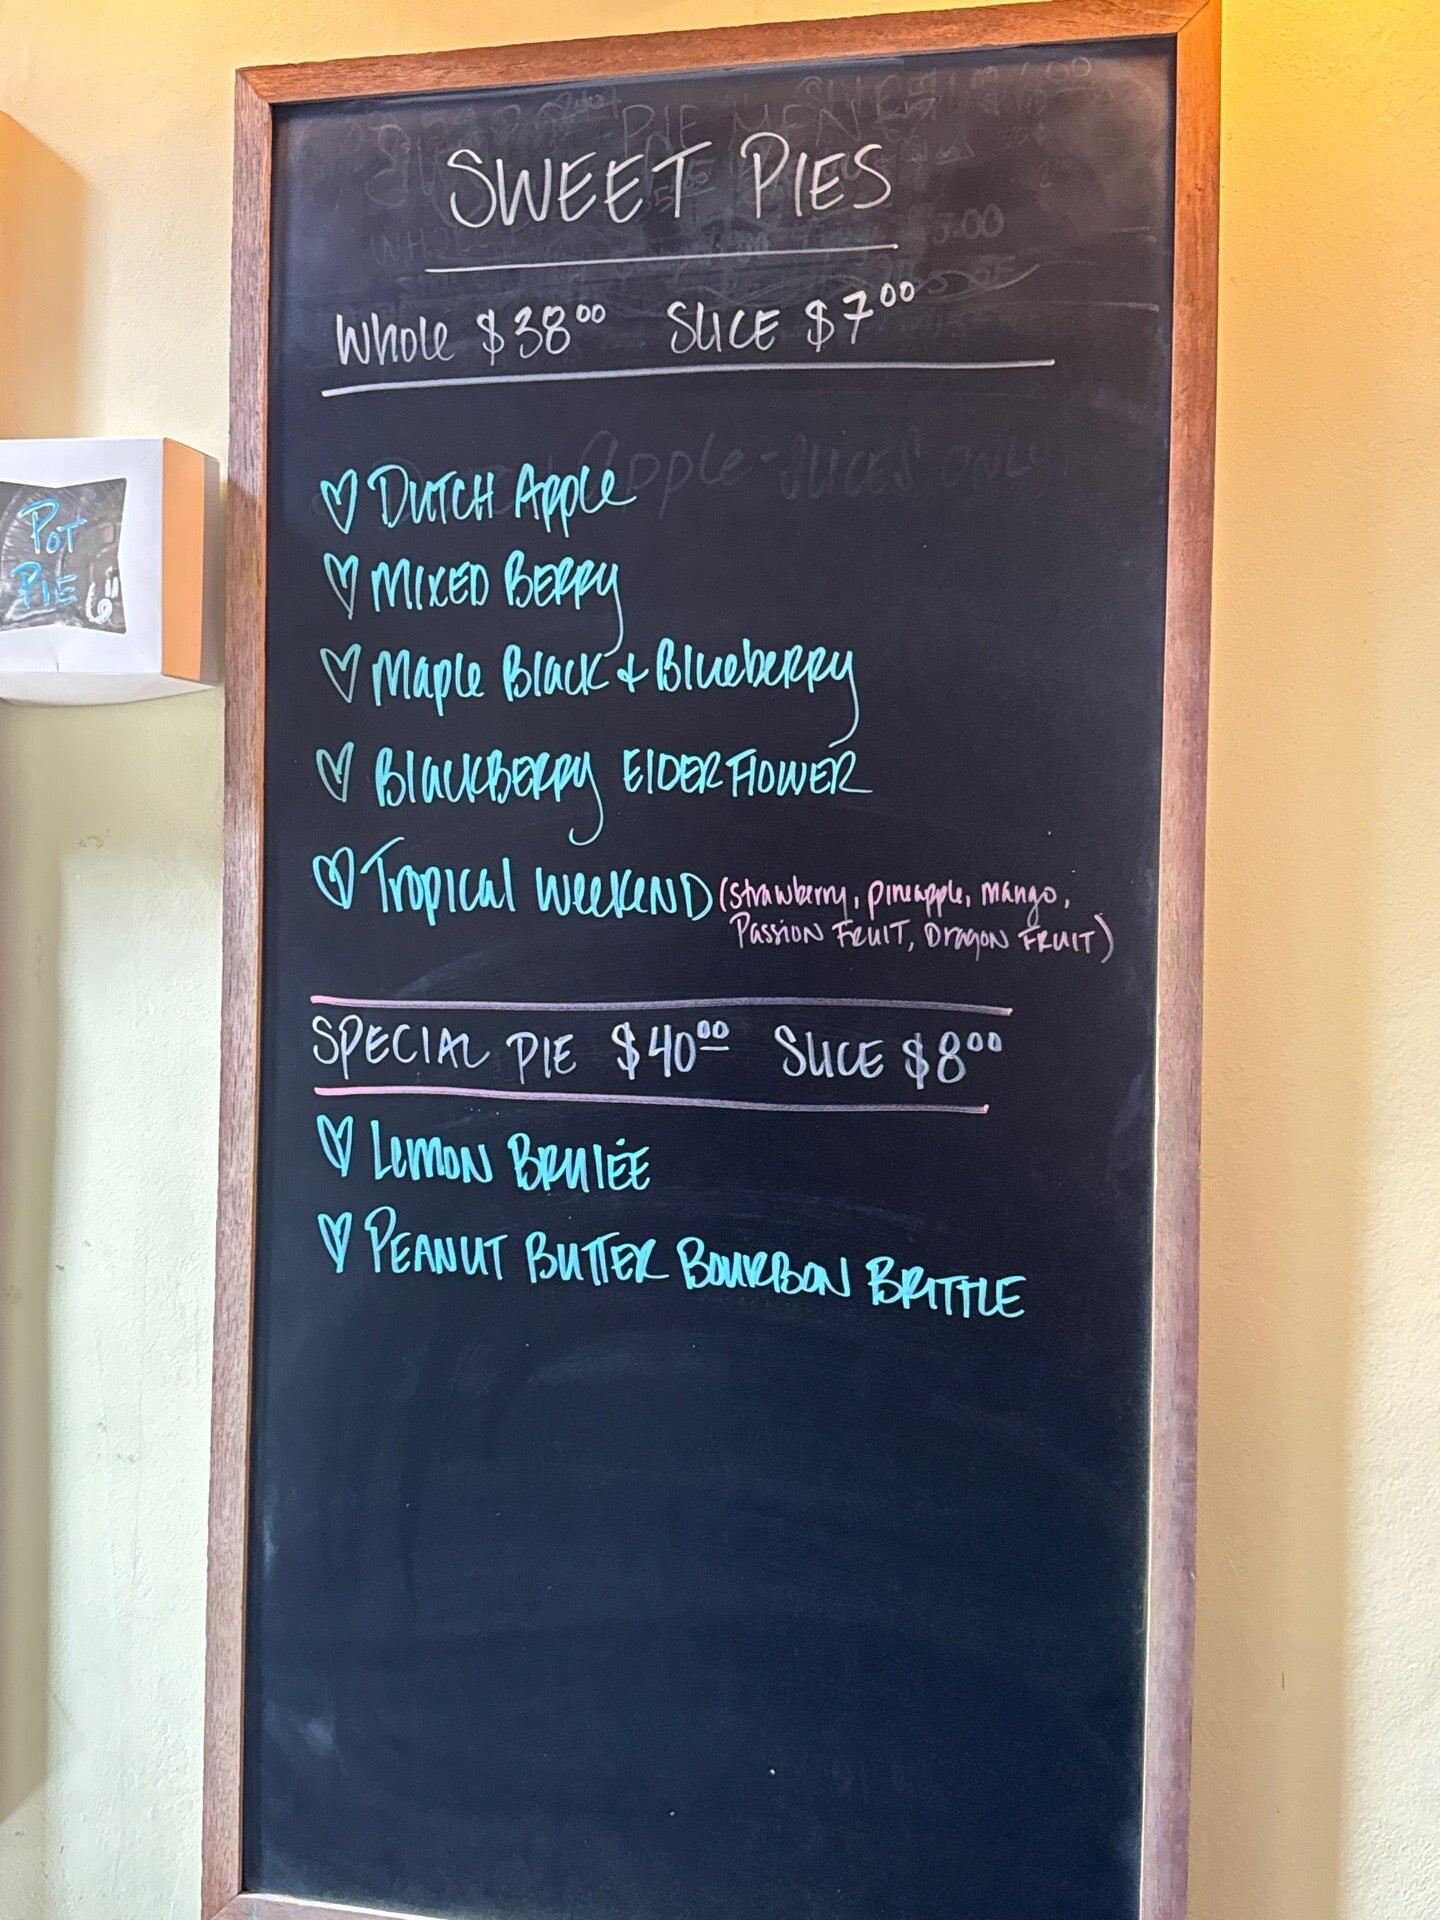 SWEET PIES
Whole $38.00 SLICE $7.00
DUTCH Apple
MIXED BERRY
Maple Black + Blueberry
BlackBERRY ElDERFlOWER
Tropical WeekEND (strawberry, pineapple, mango,
Passion FRUIT, Dragon FRUIT)
SPECIAL PIE $40.00 SLICE $8.00
Lemon BRulÉE
PEANUT BUTTER BOURBON BRITTLE
POT
PIE 6"